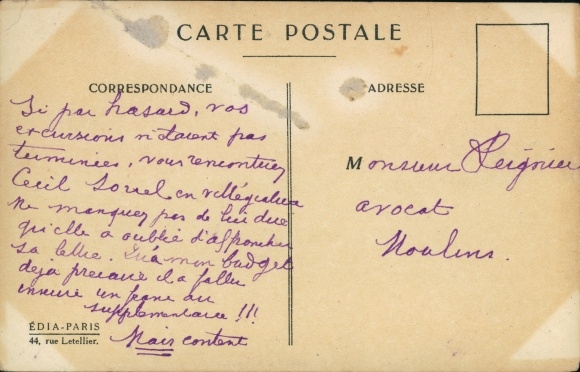 CARTE POSTALE
CORRESPONDANCE
ADRESSE
Si par hasard, vos
excursions n'étaient pas
terminées, vous rencontriez
Cecil Sorel en villégiature
ne manquez pas de lui dire
qu'elle a oublié d'affranchir
sa lettre. Qu'à mon budget
déjà précaire il a fallu
inscrire un franc au
supplémentaire !!!
Mais content
Monsieur
avocat
Moulins.
ÉDIA-PARIS
44, rue Letellier.